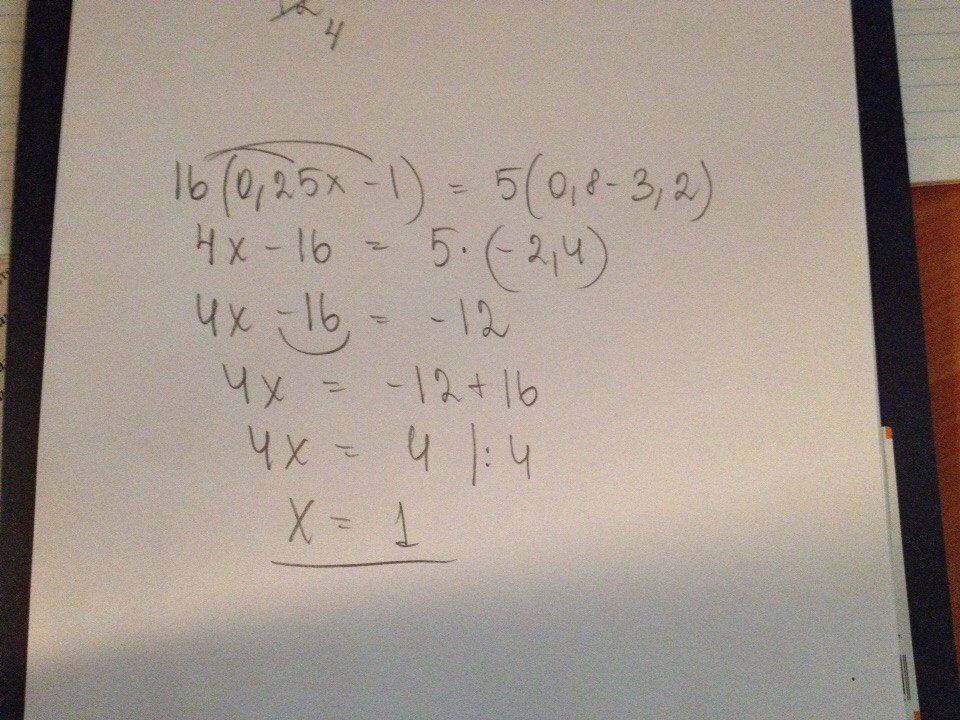 4
16(0,25x - 1) = 5(0,8 - 3,2)
4x - 16 = 5·(-2,4)
4x - 16 = -12
4x = -12 + 16
4x = 4 |:4
x = 1